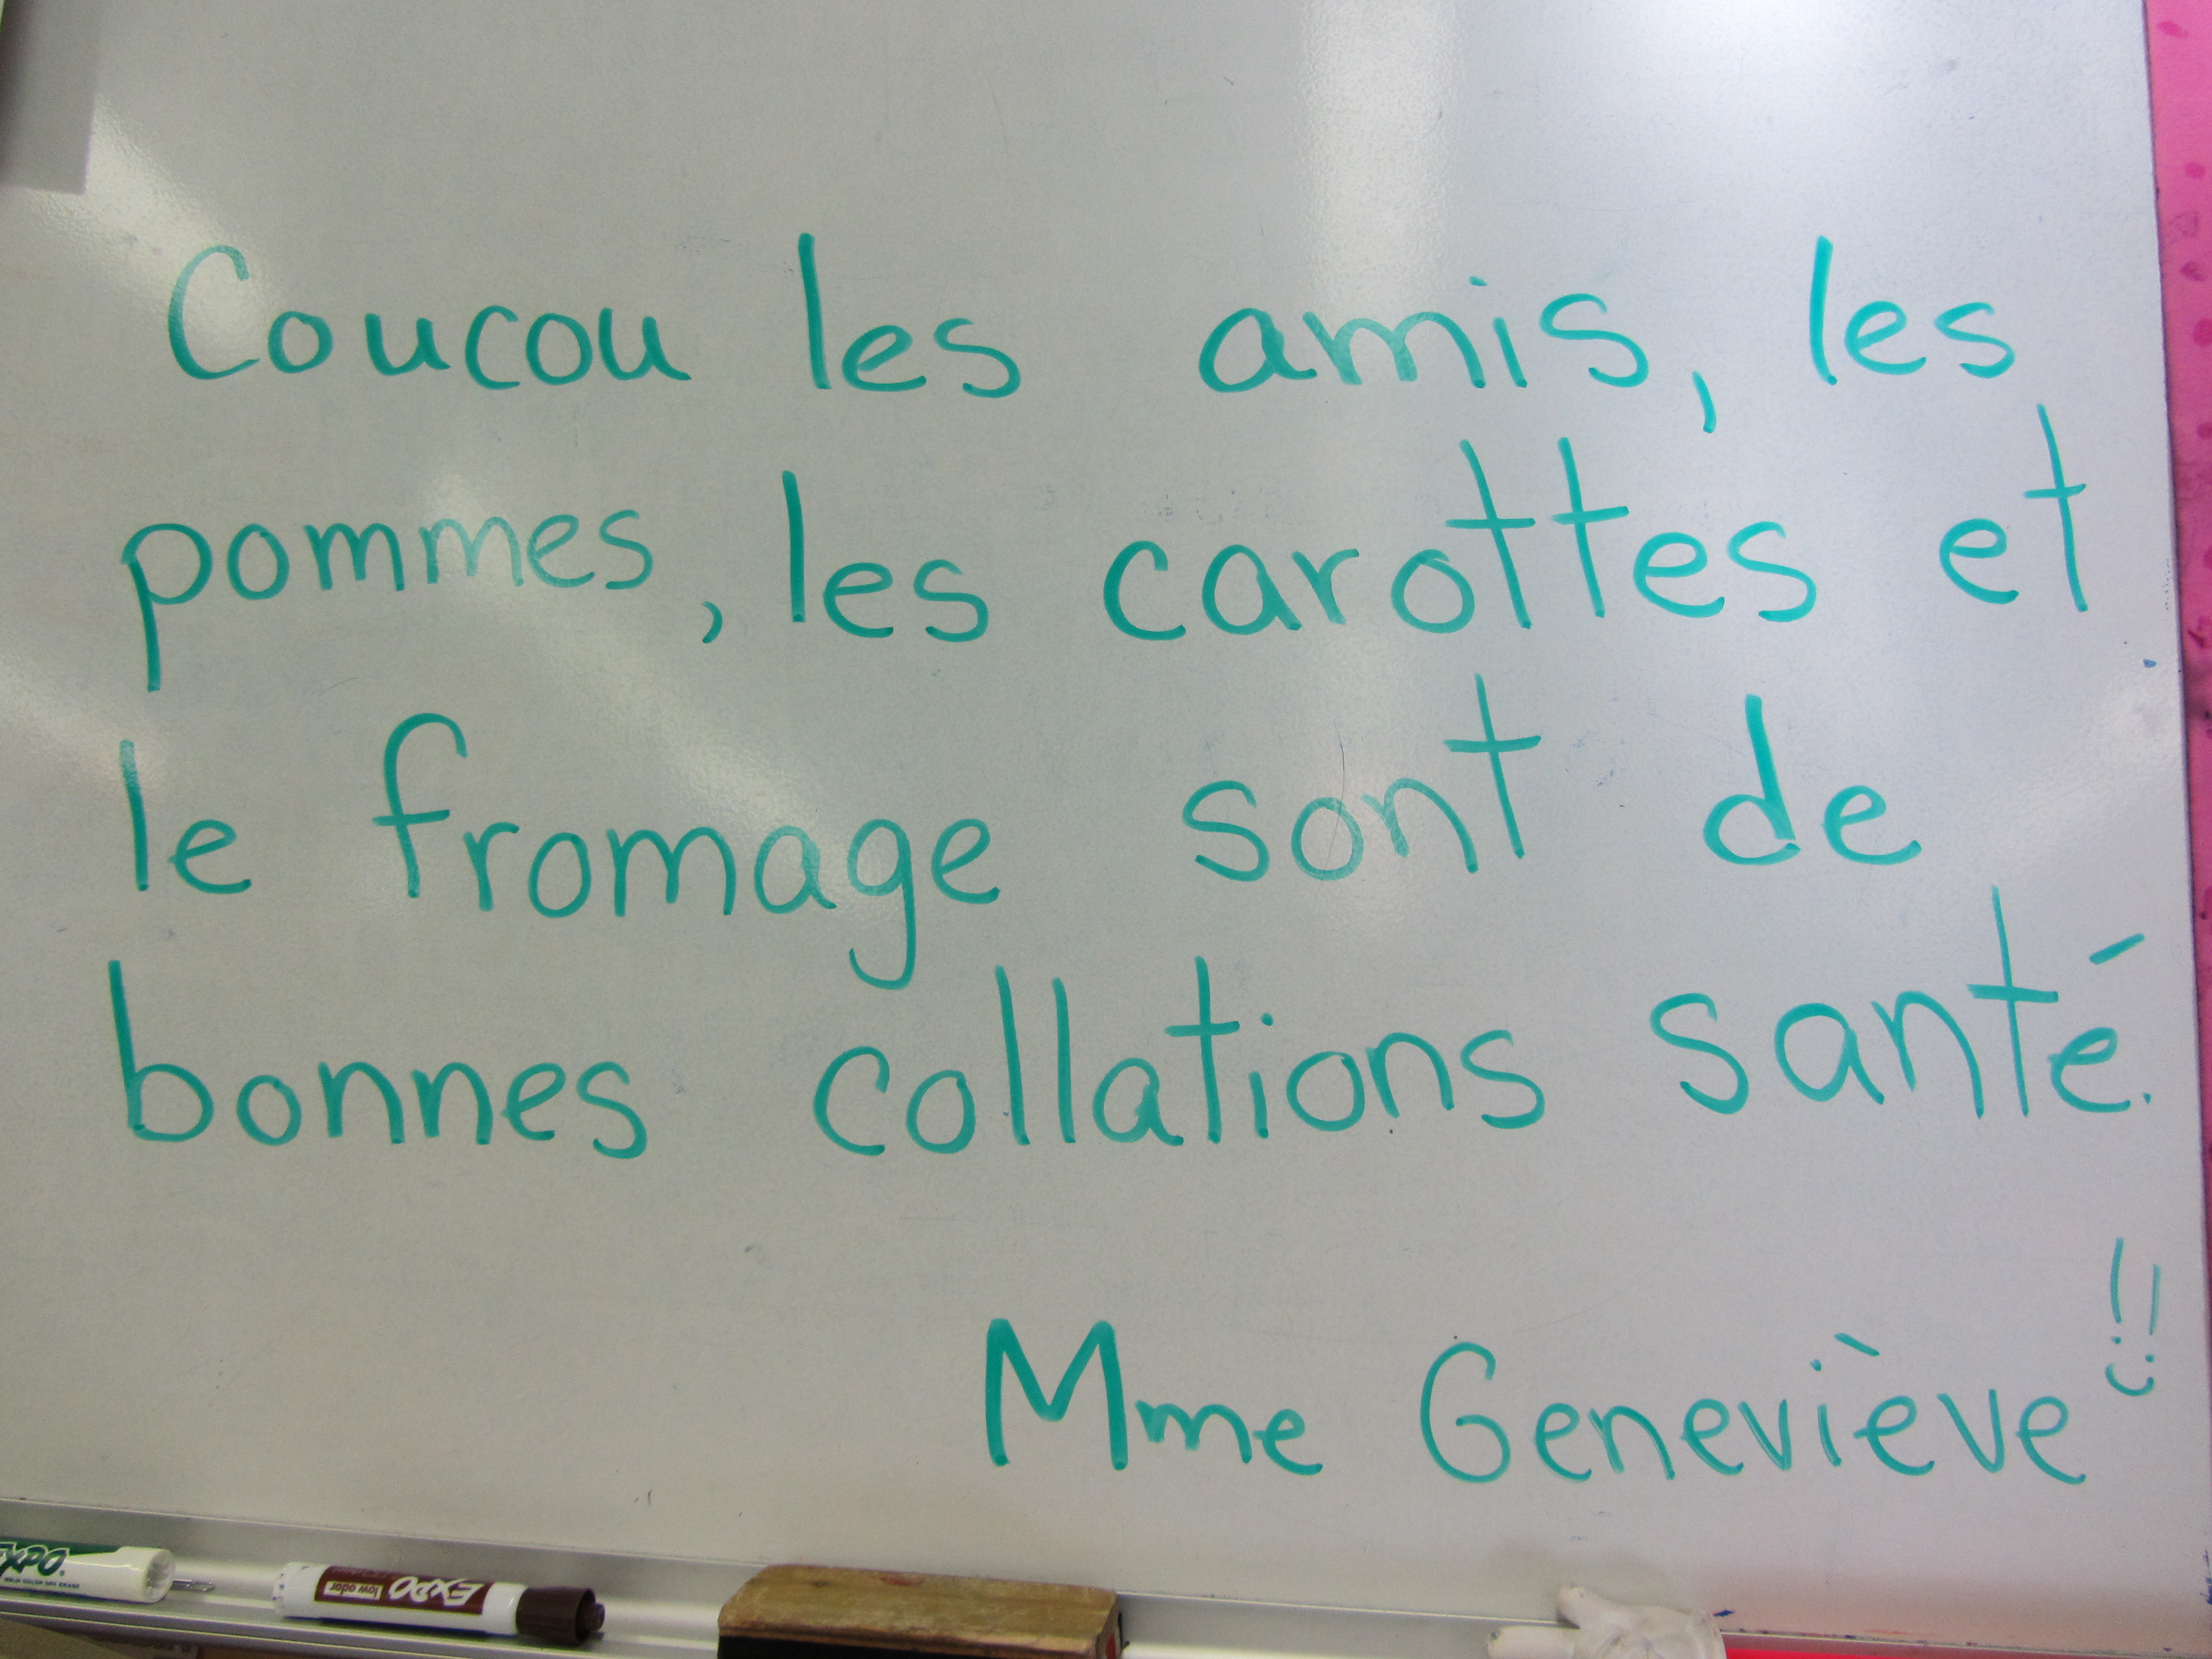 Coucou les amis, les
pommes, les carottes et
le fromage sont de
bonnes collations santé.
Mme Geneviève !!
EXPO
EXPO
low odor